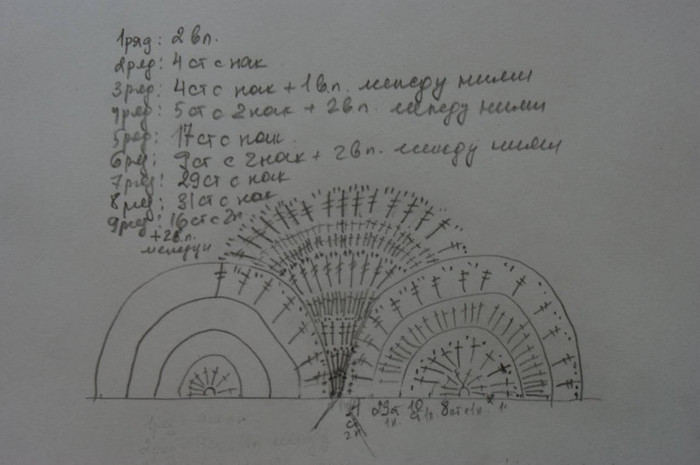 1ряд: 2 вп.
2ряд: 4 ст с нак
3ряд: 4 ст с нак + 1 вп. между ними
4ряд: 5 ст с 2 нак + 2 вп. между ними
5ряд: 17 ст с нак
6ряд: 9 ст с 2 нак + 2 вп. между ними
7ряд: 29 ст с нак
8ряд: 31 ст с нак
9ряд: 16 ст с 2н
+ 2 вп.
между